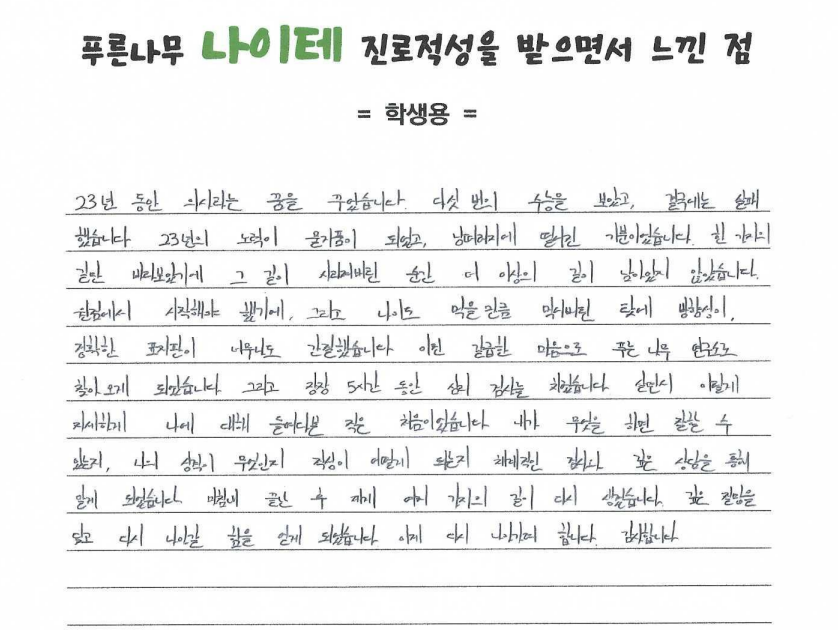 푸른나무 나이테 진로적성을 받으면서 느낀 점
= 학생용 =
23년 동안 의사라는 꿈을 꾸었습니다. 다섯 번의 수능을 보았고, 결국에는 실패
했습니다 23년의 노력이 물거품이 되었고, 낭떠러지에 떨어진 기분이었습니다. 한 가지의
길만 바라보았기에 그 길이 사라져버린 순간 더 이상의 길이 남아있지 않았습니다.
원점에서 시작해야 했기에, 그리고 나이도 먹을 만큼 먹어버린 탓에 방향성이,
정확한 표지판이 너무나도 간절했습니다 이런 갈급한 마음으로 푸른 나무 연구소로
찾아 오게 되었습니다 그리고 장장 5시간 동안 심리 검사를 치렀습니다 살면서 이렇게
자세하게 나에 대해 들여다본 적은 처음이었습니다 내가 무엇을 하면 잘할 수
있는지, 나의 성격이 무엇인지 적성이 어떻게 되는지 체계적인 검사와 깊은 상담을 통해
알게 되었습니다. 마침내 끝난 후 제게 여러 가지의 길이 다시 생겼습니다. 깊은 절망을
딛고 다시 나아갈 힘을 얻게 되었습니다 이제 다시 나아가려 합니다. 감사합니다